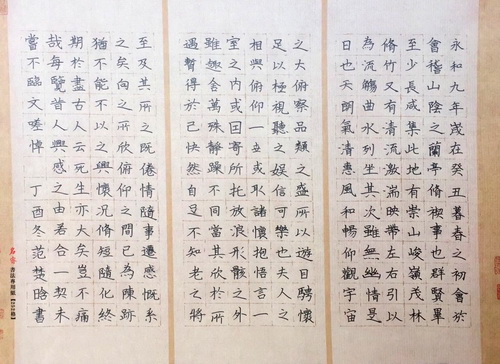 永和九年歲在癸丑暮春之初會於
會稽山陰之蘭亭脩禊事也群賢畢
至少長咸集此地有崇山峻嶺茂林
脩竹又有清流激湍映帶左右引以
為流觴曲水列坐其次雖無幽情是
日也天朗氣清惠風和暢仰觀宇宙
之大俯察品類之盛所以遊目騁懷
足以極視聽之娛信可樂也夫人之
相與俯仰一世或取諸懷抱悟言一
室之內或因寄所托放浪形骸之外
雖趣舍萬殊靜躁不同當其欣於所
遇暫得於己快然自足不知老之將
至及其所之既倦情隨事遷感慨系
之矣向之所欣俯仰之間已為陳跡
猶不能不以之興懷況脩短隨化終
期於盡古人云死生亦大矣豈不痛
哉每覽昔人興感之由若合一契未
嘗不臨文嗟悼 丁酉冬范楚晗書